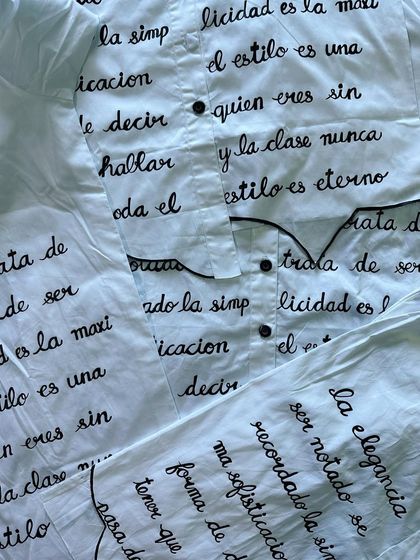 la simp
licidad es la maxi
icacion
el estilo es una
de decir
quien eres sin
hablar
y la clase nunca
oda el
estilo es eterno
ata de
de ser
d es la maxi
ilo es una
n eres sin
la clase nun
stilo
trata d
trata de ser
ado la simp
licidad es l
icacion
el es
decir
la elegancia
ser notado se
recordado la sim
ma sofisticacio
forma de
tener que
pasa de